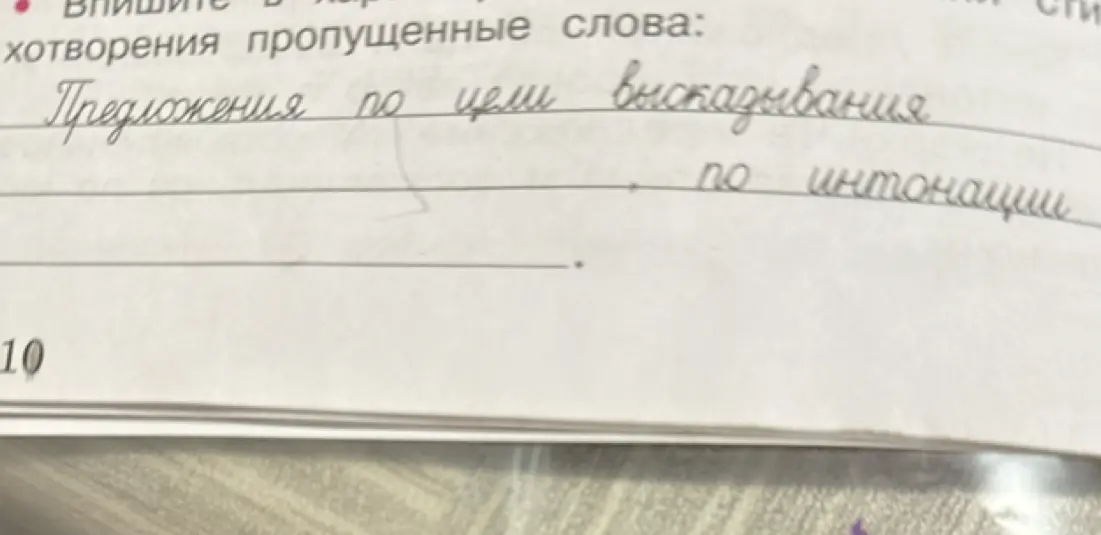 • Впишите в
хотворения пропущенные слова:
Предложения по цели высказывания
, по интонации
.
10